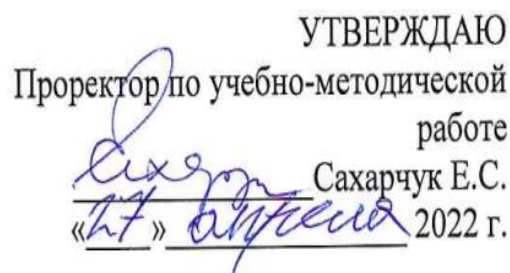 УТВЕРЖДАЮ
Проректор по учебно-методической
работе
Сахарчук Е.С.
«27» апреля 2022 г.